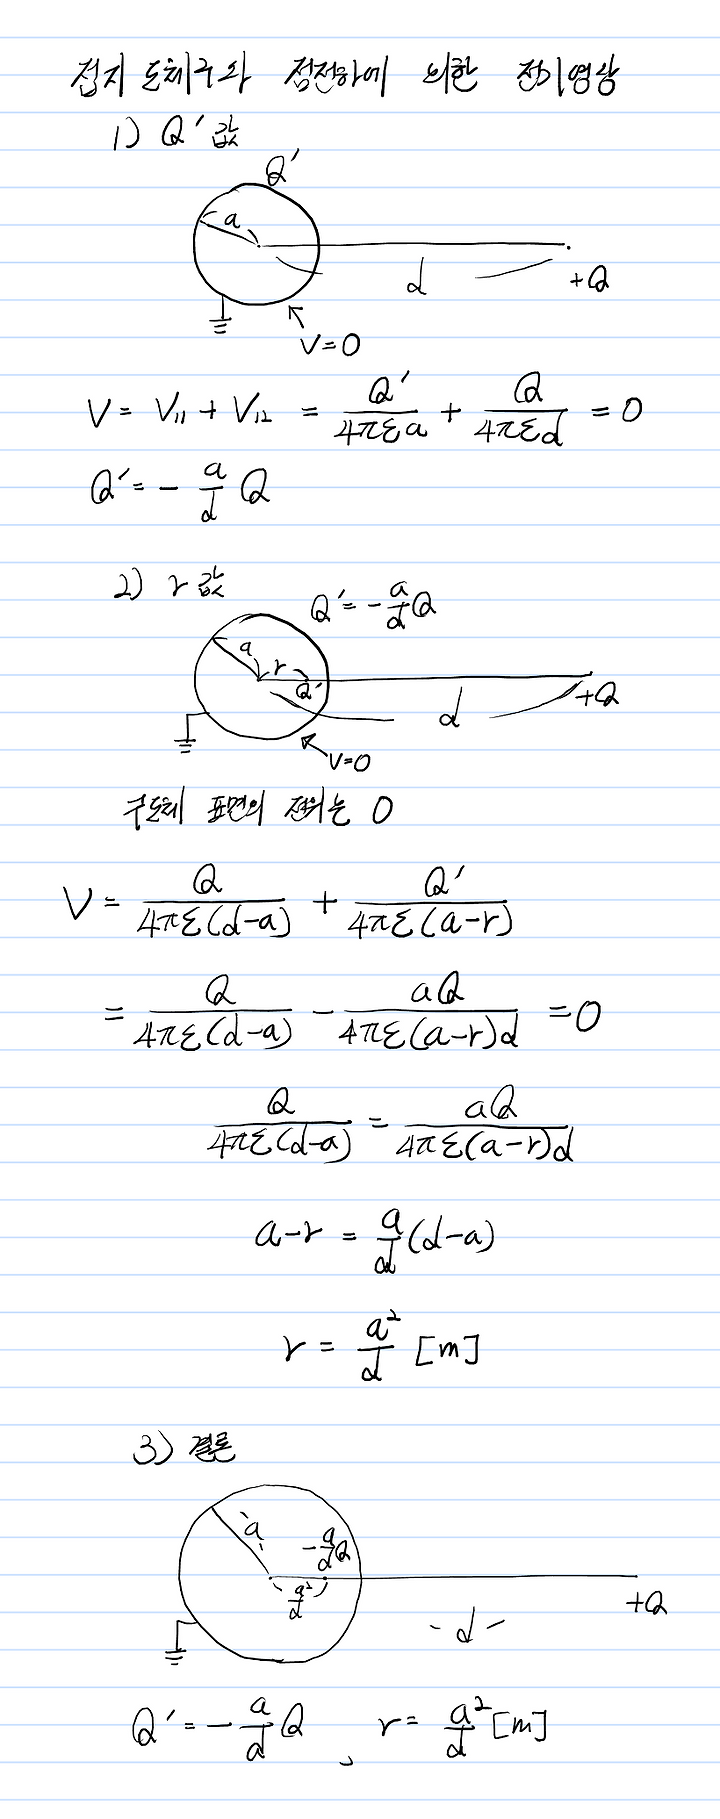 접지 도체구와 점전하에 의한 전기영상
1) Q′ 값
Q′
a
d
+Q
V=0
V = V₁₁ + V₁₂ = Q′/4πεa + Q/4πεd = 0
Q′ = - a/d Q
2) r 값
Q′ = - a/d Q
a
r
Q′
d
+Q
V=0
구도체 표면의 전위는 0
V = Q/4πε(d-a) + Q′/4πε(a-r)
= Q/4πε(d-a) - aQ/4πε(a-r)d = 0
Q/4πε(d-a) = aQ/4πε(a-r)d
a-r = a/d (d-a)
r = a²/d [m]
3) 결론
a
- a/d Q
a²/d
d
+Q
Q′ = - a/d Q , r = a²/d [m]